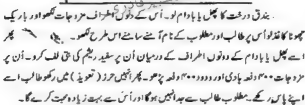 بندق درخت کا پھل یا بادام لو۔ اُس کے دونوں اطراف مزدجات لکھو اور باریک
چھوٹا کاغذ لو اُس پر طالب اور مطلوب کے نام آمنے سامنے اس طرح لکھو۔ پھر
اسے پھل یا بادام کے دونوں اطراف کے درمیان اُن پر سفید ریشم کی بتی لف کرو۔ اُن پر
مزدجات ۴۰۰ دفعہ پڑھو۔ پھر اُنہیں حرز (تعویذ) میں رکھو طالب اسے
اپنے پاس رکھے۔ مطلوب طالب سے جدا نہیں ہوگا اور اُس سے بہت زیادہ محبت کرے گا۔